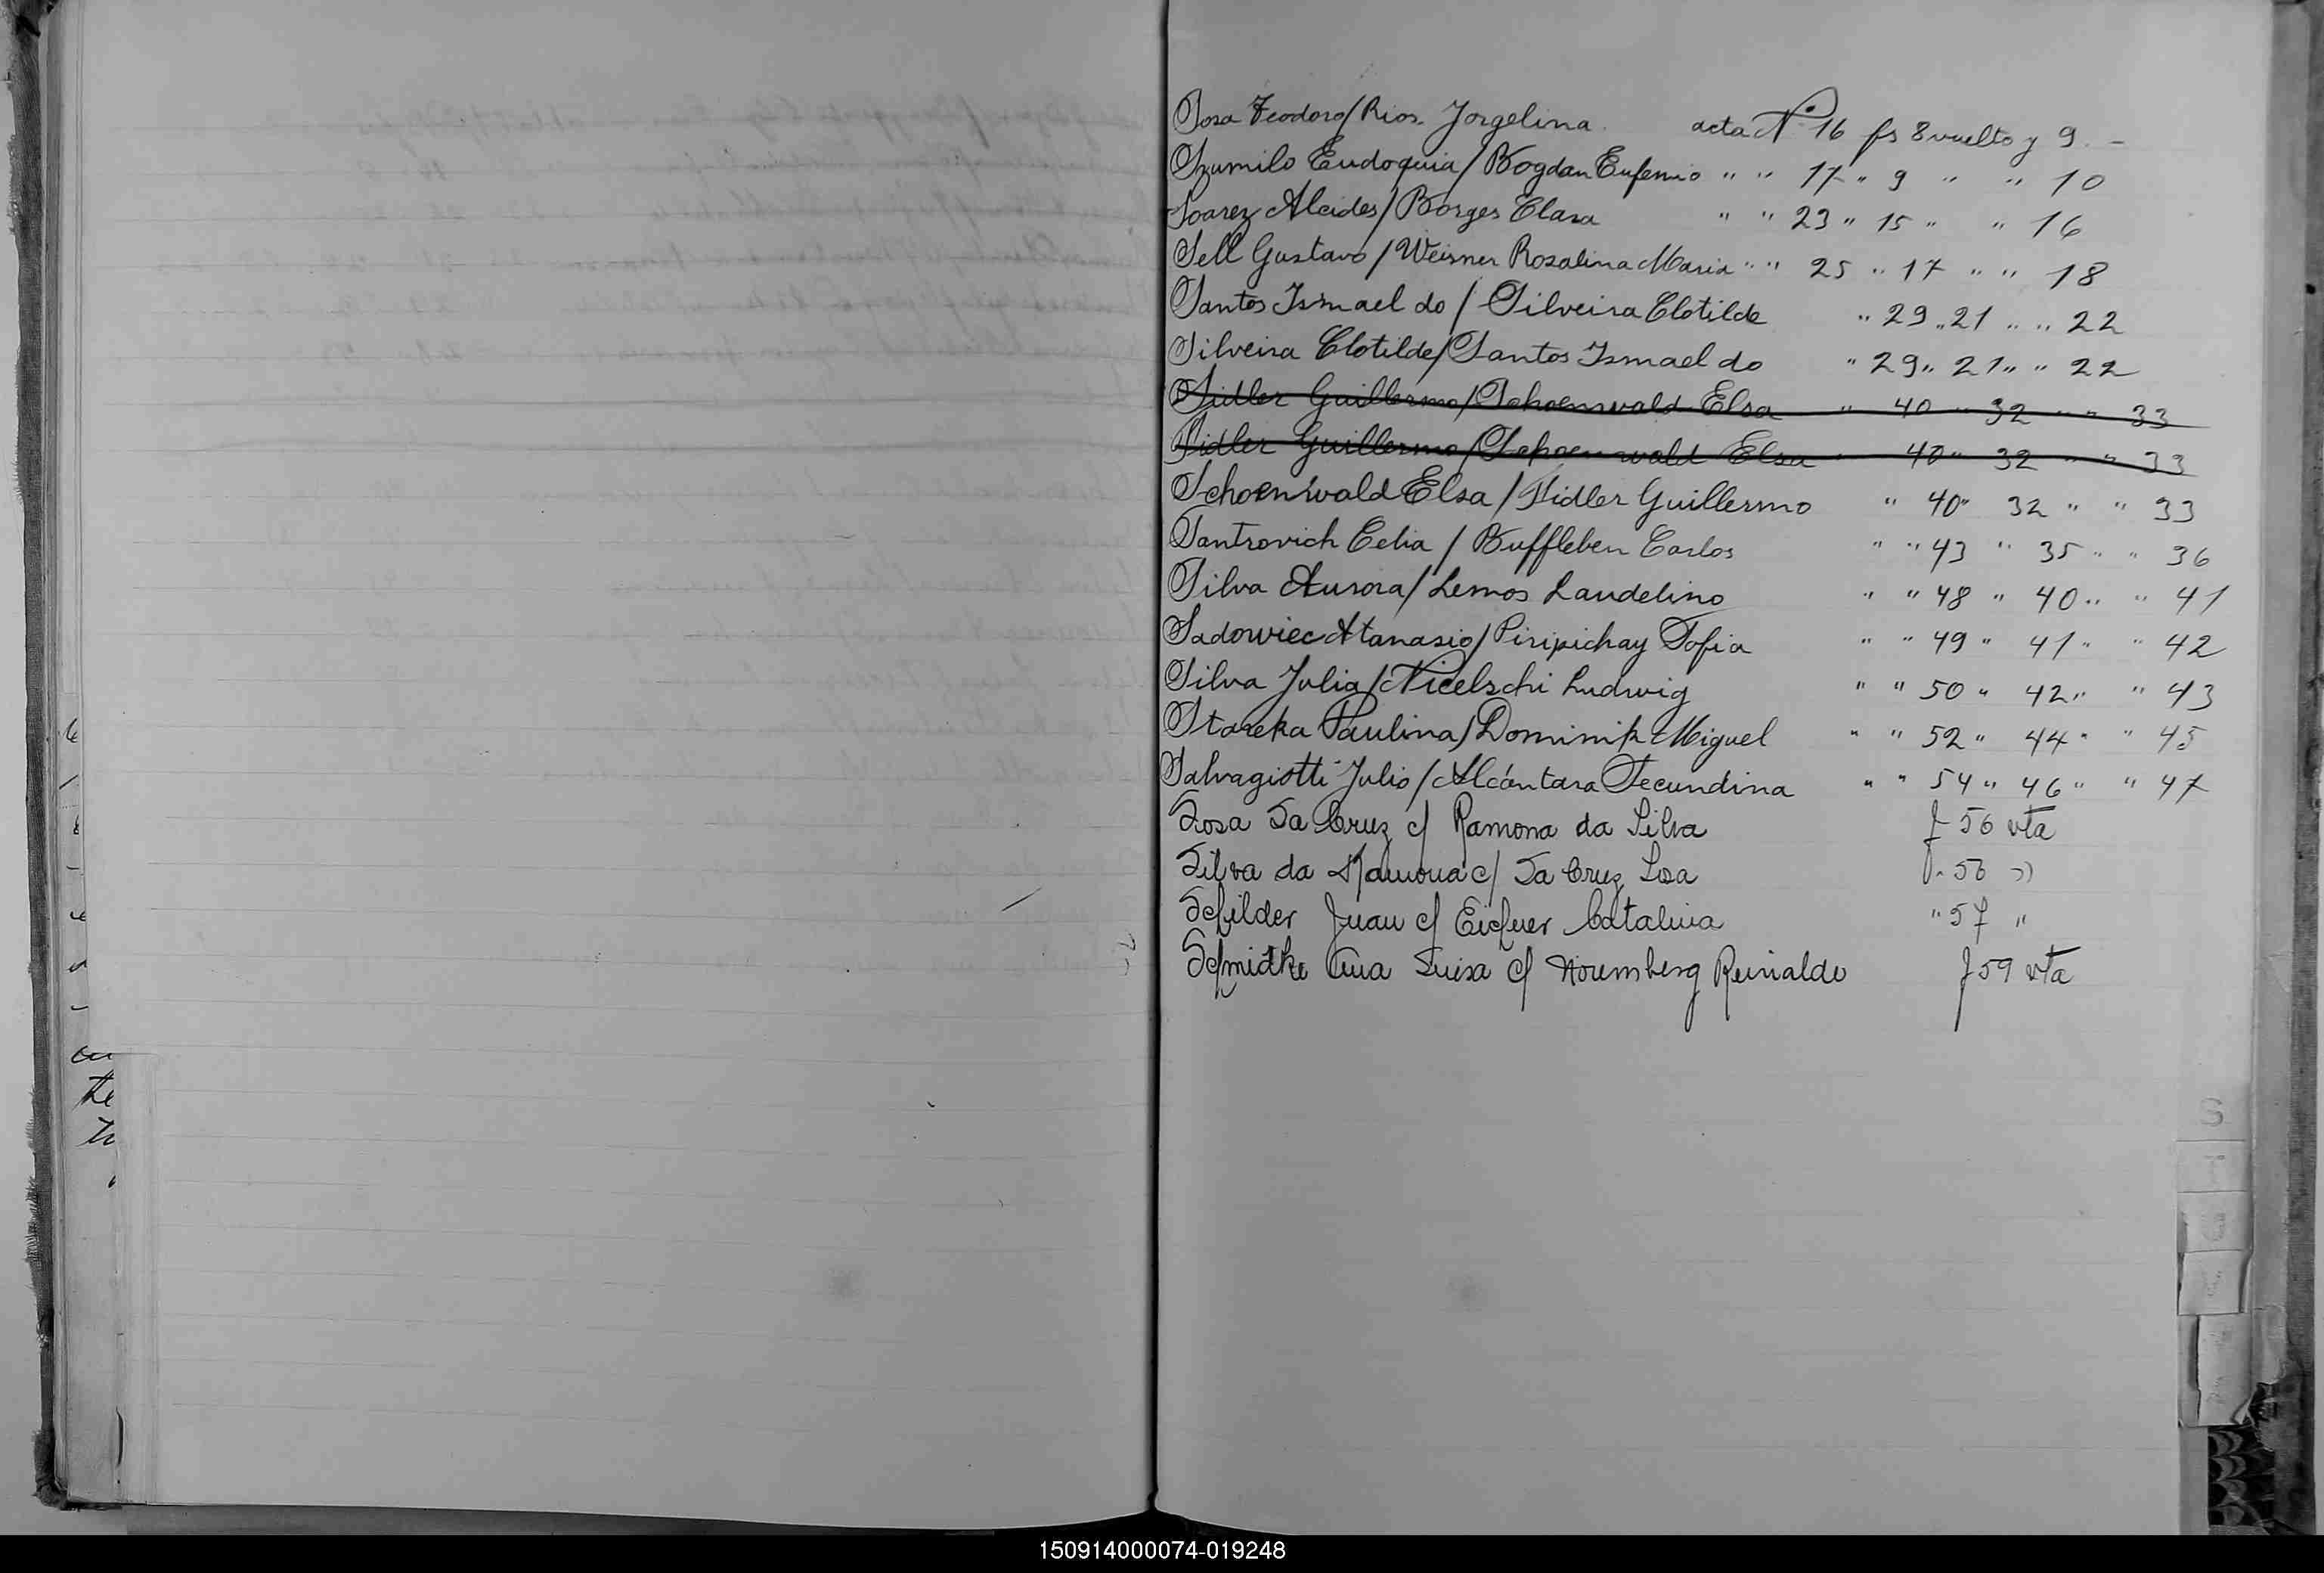 Sosa Teodoro/Rios. Jorgelina. acta Nº 16 fs 8 vuelto y 9. -
Szumilo Eudoquia/Bogdan Eufemio " " 17 " 9 " " 10
Soarez Alcides/Borges Clara " " 23 " 15 " " 16
Sell Gustavo/Weisner Rosalina Maria " " 25 " 17 " " 18
Santos Ismael do/Silveira Clotilde " 29 " 21 " " 22
Silveira Clotilde/Santos Ismael do " 29 " 21 " " 22
Sidler Guillermo/Schoenwald Elsa " 40 " 32 " " 33
Fidler Guillermo/Schoenwald Elsa " 40 " 32 " " 33
Schoenwald Elsa/Fidler Guillermo " 40 " 32 " " 33
Santrovich Celia/Buffleben Carlos " " 43 " 35 " " 36
Silva Aurora/Lemos Laudelino " " 48 " 40 " " 41
Sadowiec Atanasio/Piripichay Sofia " " 49 " 41 " " 42
Silva Julia/Nicelschi Ludwig " " 50 " 42 " " 43
Stareka Paulina/Dominik Miguel " " 52 " 44 " " 45
Salvagiotti Julio/Alcántara Secundina " " 54 " 46 " " 47
Sosa Da Cruz c/ Ramona da Silva f 56 vta
Silva da Ramona c/ Da Cruz Sosa f. 56 "
Schilder Juan c/ Eichner Catalina " 57 "
Schmidtke Ana Luisa c/ Nouremberg Reinaldo f 59 vta
S
T
150914000074-019248